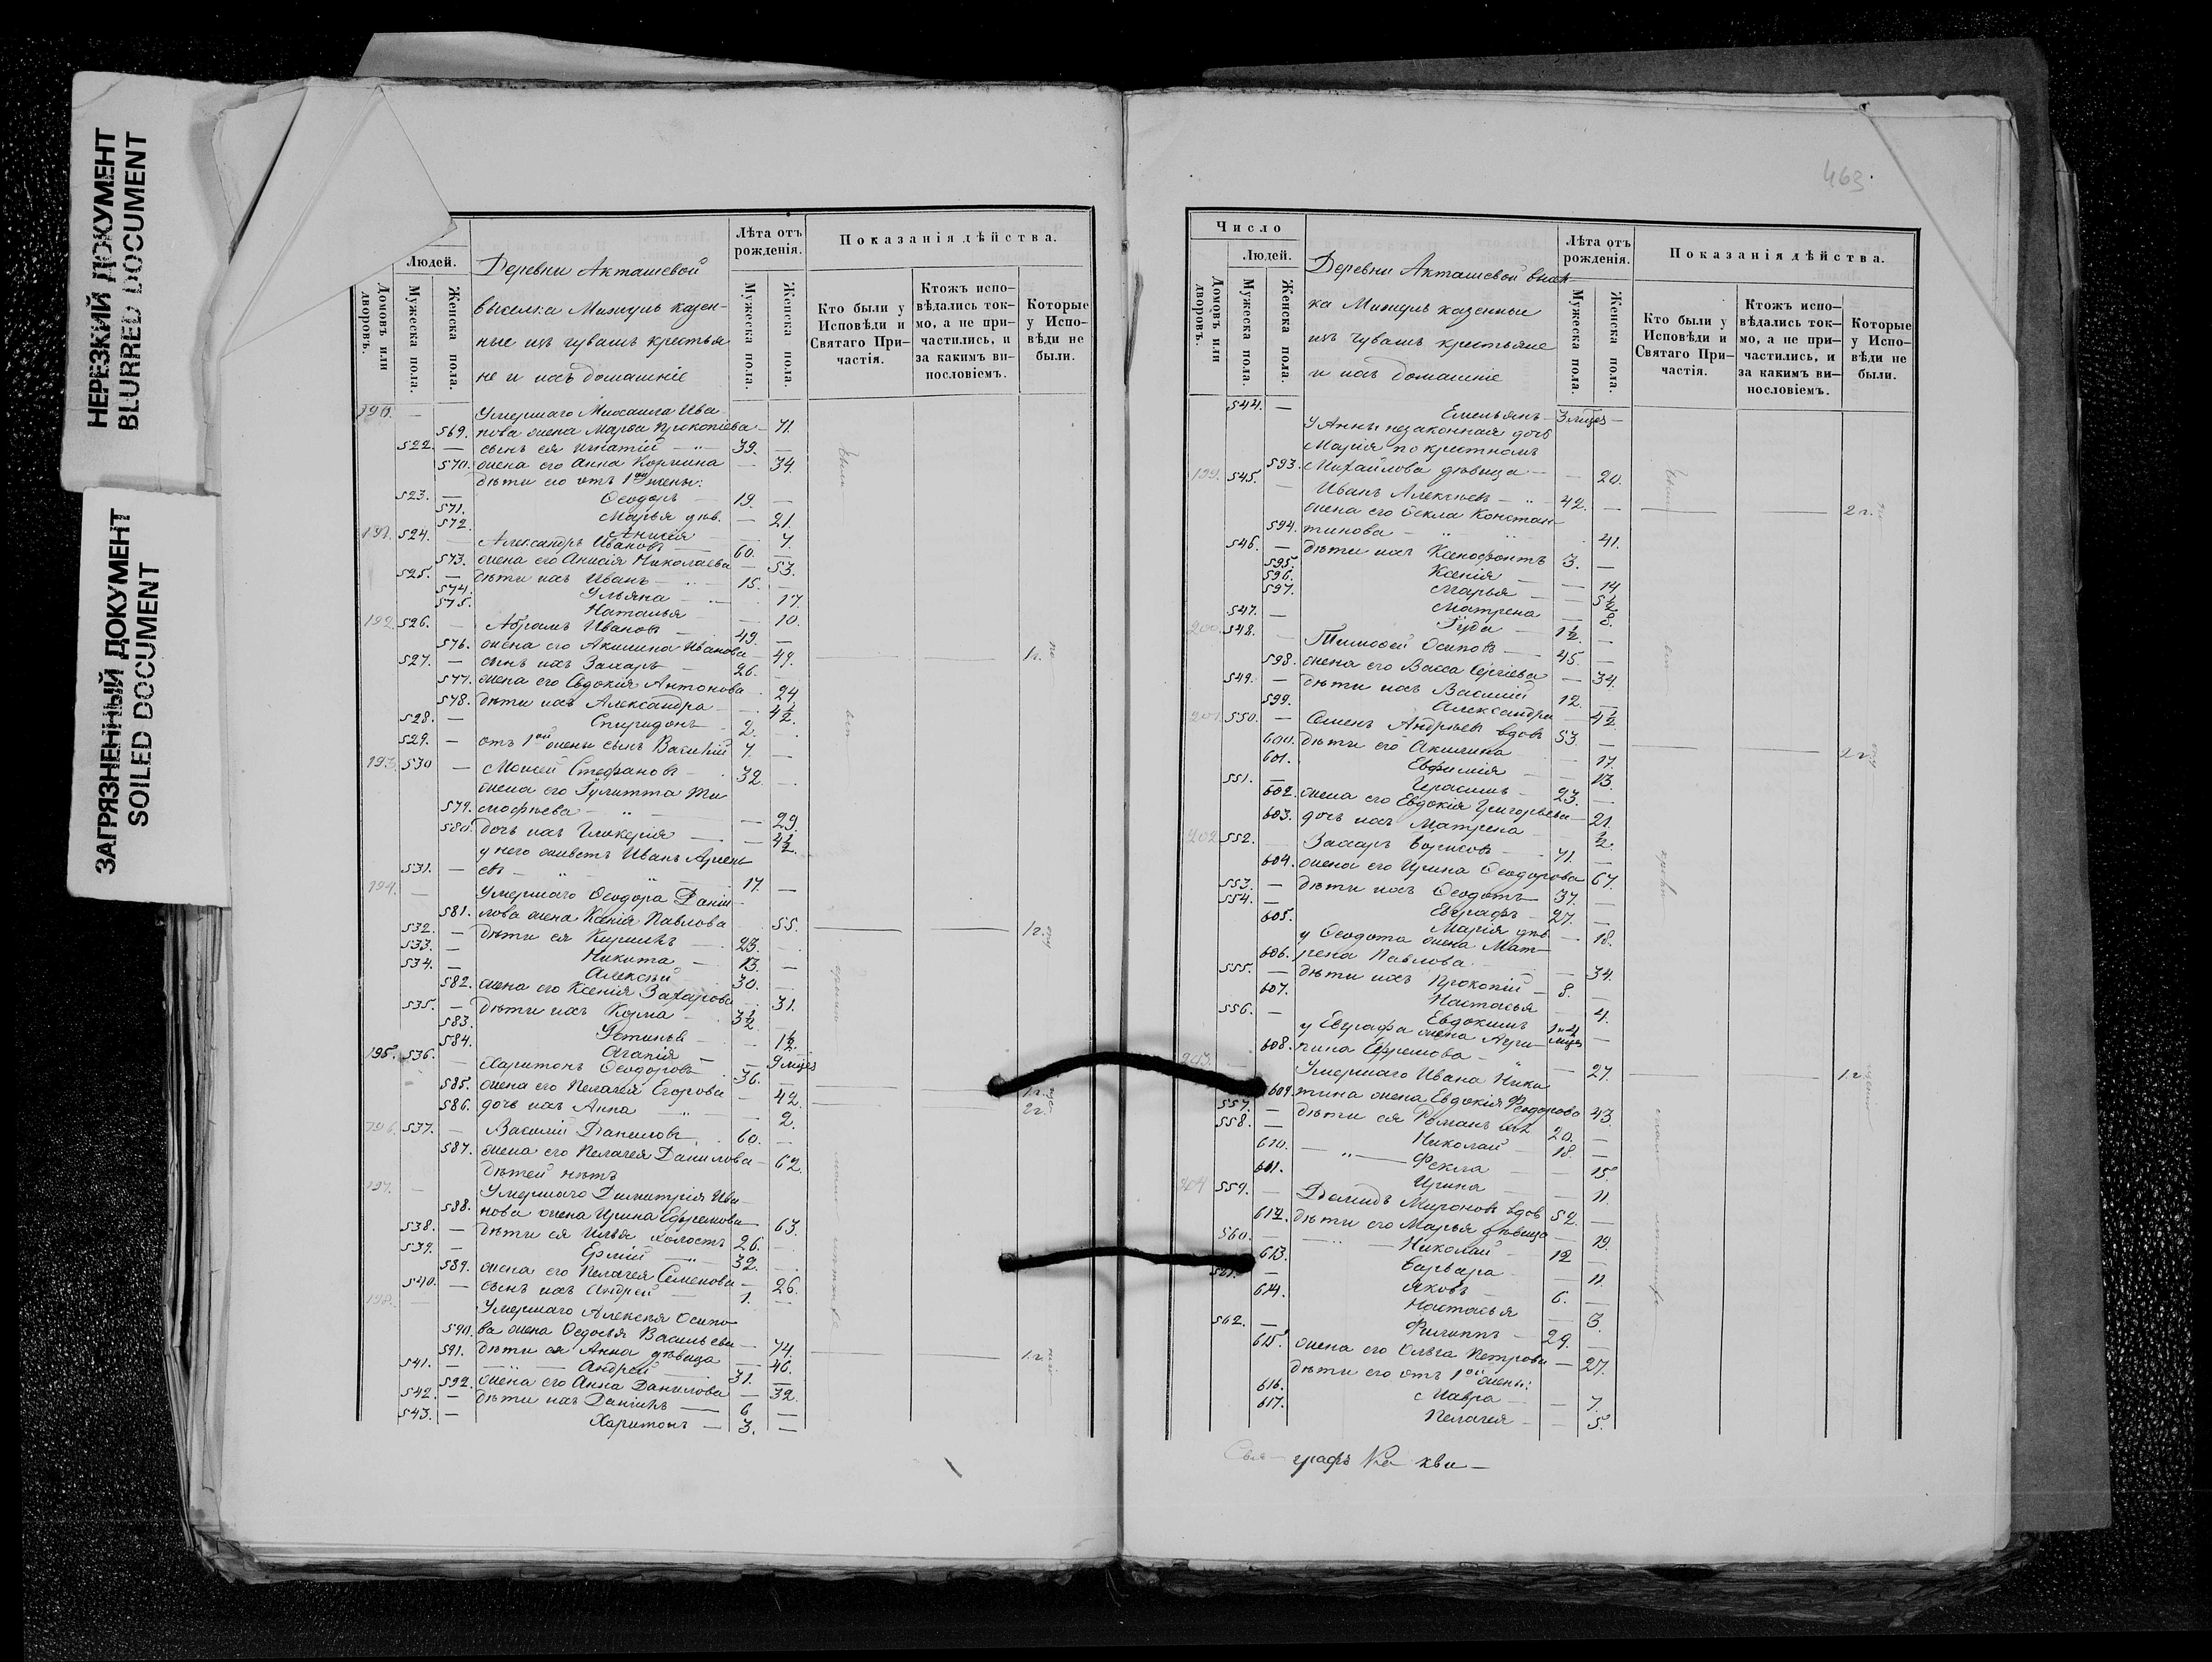 НЕРЕЗКИЙ ДОКУМЕНТ
BLURRED DOCUMENT
ЗАГРЯЗНЕННЫЙ ДОКУМЕНТ
SOILED DOCUMENT
Людей.
Домовъ или дворовъ.
Мужеска пола.
Женска пола.
Деревни Акташевой
выселка казен-
ные изъ чувашъ крестья
не и ихъ домашніе
Лѣта отъ рожденія.
Мужеска пола.
Женска пола.
Показанія дѣйства.
Кто были у Исповѣди и Святаго При-частія.
Ктожъ испо-вѣдались ток-мо, а не при-частились, и за какимъ ви-нословіемъ.
Которые у Испо-вѣди не были.
190. — Умершаго Михаила Ива
569. нова жена Марѳа Прокопіева — 71.
522. — сынъ ея Игнатій 39. —
570. жена его Анна — 34.
дѣти его отъ 1ой жены:
523. — Ѳеодоръ 19. —
571. Марья дѣв. — 21.
572. Анисія — 7.
191. 524. — Александръ Ивановъ 60.
573. жена его Анисія Николаева — 53.
525. — дѣти ихъ Иванъ 15.
574. Ульяна — 17.
575. Наталья — 10.
192. 526. — Абрамъ Ивановъ 49. —
576. жена его Акилина Иванова — 49. 1г.
527. — сынъ ихъ Захаръ 26. —
577. жена его Евдокія Антонова 24
578. дѣти ихъ Александра — 4½.
528. — Спиридонъ 2. —
529. — отъ 1ой жены сынъ Василій 7. —
193. 530 — Моисей Стефановъ 32. —
жена его Іулитта Ти
579. моѳѣева — 29.
580. дочь ихъ Гликерія — 4½.
у него живетъ Иванъ Арсень
531. — евъ 17. —
194. — Умершаго Ѳеодора Даніи
581. лова жена Ксенія Павлова 55. 1г.
532. — дѣти ея Кириллъ 23. —
533. — Никита 13. —
534. — Алексѣй 30. —
582. жена его Ксенія Захарова 31.
535. — дѣти ихъ Козма 3½
583. Устинья — 1½.
584. Агапія — 9 мцѣс
195. 536. — Харитонъ Ѳеодоровъ 36. —
585. жена его Пелагея Егорова — 42. 1г.
586. дочь ихъ Анна — 2. 2г.
196. 537. — Василій Даниловъ 60. —
587. жена его Пелагея Данилова — 62.
дѣтей нѣтъ
197. — Умершаго Димитрія Ива
588. нова жена Ирина Ефремова — 63.
538. — дѣти ея Илья холостъ 26. —
539. — Ермій 32. —
589. жена его Пелагея Семенова — 26.
540. — сынъ ихъ Андрей 1. —
198. — Умершаго Алексѣя Осипо
590. ва жена Ѳедосья Васильева — 74.
591. дѣти ея Анна дѣвица — 46. 1г.
541. — Андрей 31. —
592. жена его Анна Данилова — 32.
542. — дѣти ихъ Даніилъ 6 —
543. — Харитонъ — 3. —
463.
Число
Людей.
Домовъ или дворовъ.
Мужеска пола.
Женска пола.
Деревни Акташевой высел
ка казенные
изъ чувашъ крестьяне
и ихъ домашніе
Лѣта отъ рожденія.
Мужеска пола.
Женска пола.
Показанія дѣйства.
Кто были у Исповѣди и Святаго При-частія.
Ктожъ испо-вѣдались ток-мо, а не при-частились, и за какимъ ви-нословіемъ.
Которые у Испо-вѣди не были.
544. — Емельянъ 3 мцѣс —
у Анны незаконная дочь
Марія по крестномъ
593. Михайлова дѣвица — 20.
199. 545. — Иванъ Алексѣевъ 42. —
жена его Ѳекла Констан 2г.
594. тинова 41.
546. — дѣти ихъ Ксенофонтъ 3. —
595. Ксенія — 14
596. Марья — 5½
597. Матрена — 8.
547. — Іуда 1½. —
200. 548. — Тимоѳей Осиповъ 45. —
598. жена его Васса Сергіева — 34.
549. — дѣти ихъ Василій 12. —
599. Александра — 4½
201. 550. — Семенъ Андреевъ вдовъ 53 —
600. дѣти его Акилина — 17. 2г.
601. Евфимія — 13.
551. — Герасимъ 23. —
602. жена его Евдокія Григорьева — 21.
603. дочь ихъ Матрена — ½.
202 552. — Захаръ Борисовъ 71. —
604. жена его Ирина Ѳеодорова 67.
553. — дѣти ихъ Ѳеодотъ 37. —
554. — Евграфъ 27. —
605. Марія дѣв. — 18.
у Ѳеодота жена Мат
606. рена Павлова — 34.
555. — дѣти ихъ Прокопій 8. —
607. Настасья — 4.
556. — Евдокимъ —
у Евграфа жена Агри
608. пина Ефремова — 27.
203. — Умершаго Ивана Ники 1г.
609. тина жена Евдокія Ѳеодорова 43.
557. — дѣти ея Романъ 20. —
558. — Николай 18. —
610. Ѳекла — 15.
611. Ирина — 11.
204 559. — Демидъ Мироновъ вдов 52. —
612. дѣти его Марья дѣвица — 19.
560. — Николай 12 —
613. Варвара — 11.
561. — Яковъ 6. —
614. Настасья — 3.
562. — Филиппъ 29. —
615. жена его Ольга Петрова — 27.
дѣти его отъ 1ой жены:
616. Мавра — 7.
617. Пелагея — 5.